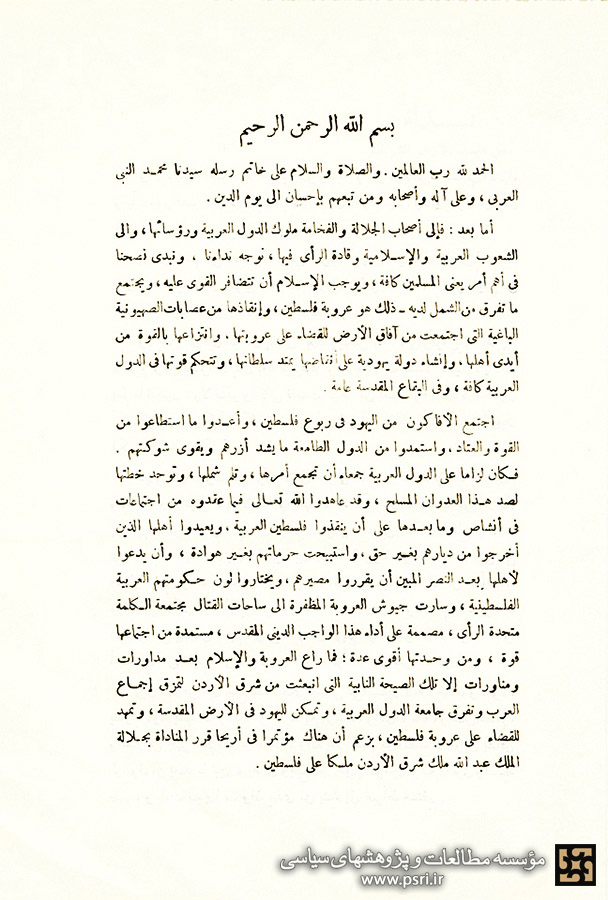 بسم الله الرحمن الرحيم
الحمد لله رب العالمين . والصلاة والسلام على خاتم رسله سيدنا محمد النبى
العربى ، وعلى آله وأصحابه ومن تبعهم بإحسان الى يوم الدين .
أما بعد : فإلى أصحاب الجلالة والفخامة ملوك الدول العربية ورؤسائها ، والى
الشعوب العربية والإسلامية وقادة الرأى فيها ، نوجه نداءنا . ونبدى نصحنا
فى أهم أمر يعنى المسلمين كافة ، ويوجب الإسلام أن تتضافر القوى عليه ، ويجتمع
ما تفرق من الشمل لديه ـ ذلك هو عروبة فلسطين ، وإنقاذها من عصابات الصهيونية
الباغية التى اجتمعت من آفاق الأرض للقضاء على عروبتها . وانتزاعها بالقوة من
أيدى أهلها ، وإنشاء دولة يهودية على أنقاضها يمتد سلطانها ، وتتحكم قوتها فى الدول
العربية كافة ، وفى البقاع المقدسة عامة .
اجتمع الأفاكون من اليهود فى ربوع فلسطين ، وأعدوا ما استطاعوا من
القوة والعتاد ، واستمدوا من الدول الطامعة ما يشد أزرهم ويقوى شوكتهم .
فكان لزاما على الدول العربية جمعاء أن تجمع أمرها ، وتلم شملها ، وتوحد خطتها
لصد هذا العدوان المسلح ، وقد عاهدوا الله تعالى فيما عقدوه من اجتماعات
فى أنشاص وما بعدها على أن ينقذوا فلسطين العربية . ويعيدوا أهلها الذين
أخرجوا من ديارهم بغير حق ، واستبيحت حرماتهم بغير هوادة ، وأن يدعوا
لأهلها بعد النصر المبين أن يقرروا مصيرهم ، ويختاروا لون حكومتهم العربية
الفلسطينية ، وسارت جيوش العروبة المظفرة الى ساحات القتال مجتمعة الكلمة
متحدة الرأى ، مصممة على أداء هذا الواجب الدينى المقدس ، مستمدة من اجتماعها
قوة ، ومن وحدتها أقوى عدة ؛ فما راع العروبة والإسلام بعد مداورات
ومناورات إلا تلك الصيحة النابية التى انبعثت من شرق الأردن لتمزق إجماع
العرب وتفرق جامعة الدول العربية ، وتمكن لليهود فى الأرض المقدسة ، وتمهد
للقضاء على عروبة فلسطين ، بزعم أن هناك مؤتمرا فى أريحا قرر المناداة بجلالة
الملك عبد الله ملك شرق الأردن ملكا على فلسطين .
مؤسسه مطالعات و پژوهشهای سیاسی
www.psri.ir